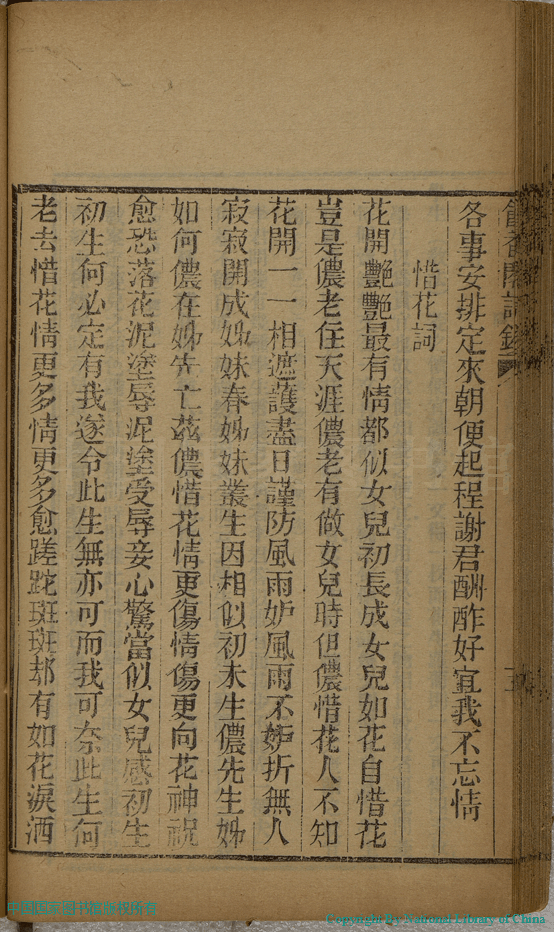 各事安排定來朝便起程謝君酬酢好宜我不忘情
惜花詞
花開艷艷最有情都似女兒初長成女兒如花自惜花
豈是儂老住天涯儂老有做女兒時但儂惜花人不知
花開一一相遮護盡日謹防風雨妒風雨不妒折無人
寂寂開成姊妹春姊妹叢生因相似初未生儂先生姊
如何儂在姊先亡茲儂惜花情更傷情傷更向花神祝
愈恐落花泥塗辱泥塗受辱妾心驚當似女兒感初生
初生何必定有我遂令此生無亦可而我可奈此生何
老去惜花情更多情更多愈蹉跎斑斑都有如花淚洒
中国国家图书馆版权所有
Copyright by National Library of China